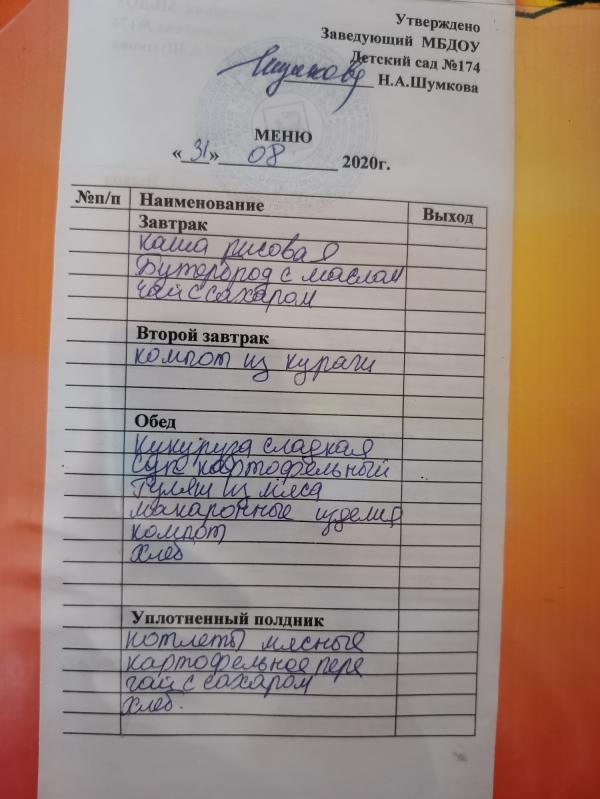 Утверждено
Заведующий МБДОУ
Детский сад №174
Н.А.Шумкова
МЕНЮ
«31» 08 2020г.
№п/п Наименование Выход
Завтрак
каша рисовая
Бутерброд с маслом
чай с сахаром
Второй завтрак
компот из кураги
Обед
Кукуруза сладкая
суп картофельный
Гуляш из мяса
макаронные изделия
компот
хлеб
Уплотненный полдник
котлеты мясные
картофельное пюре
чай с сахаром
хлеб.